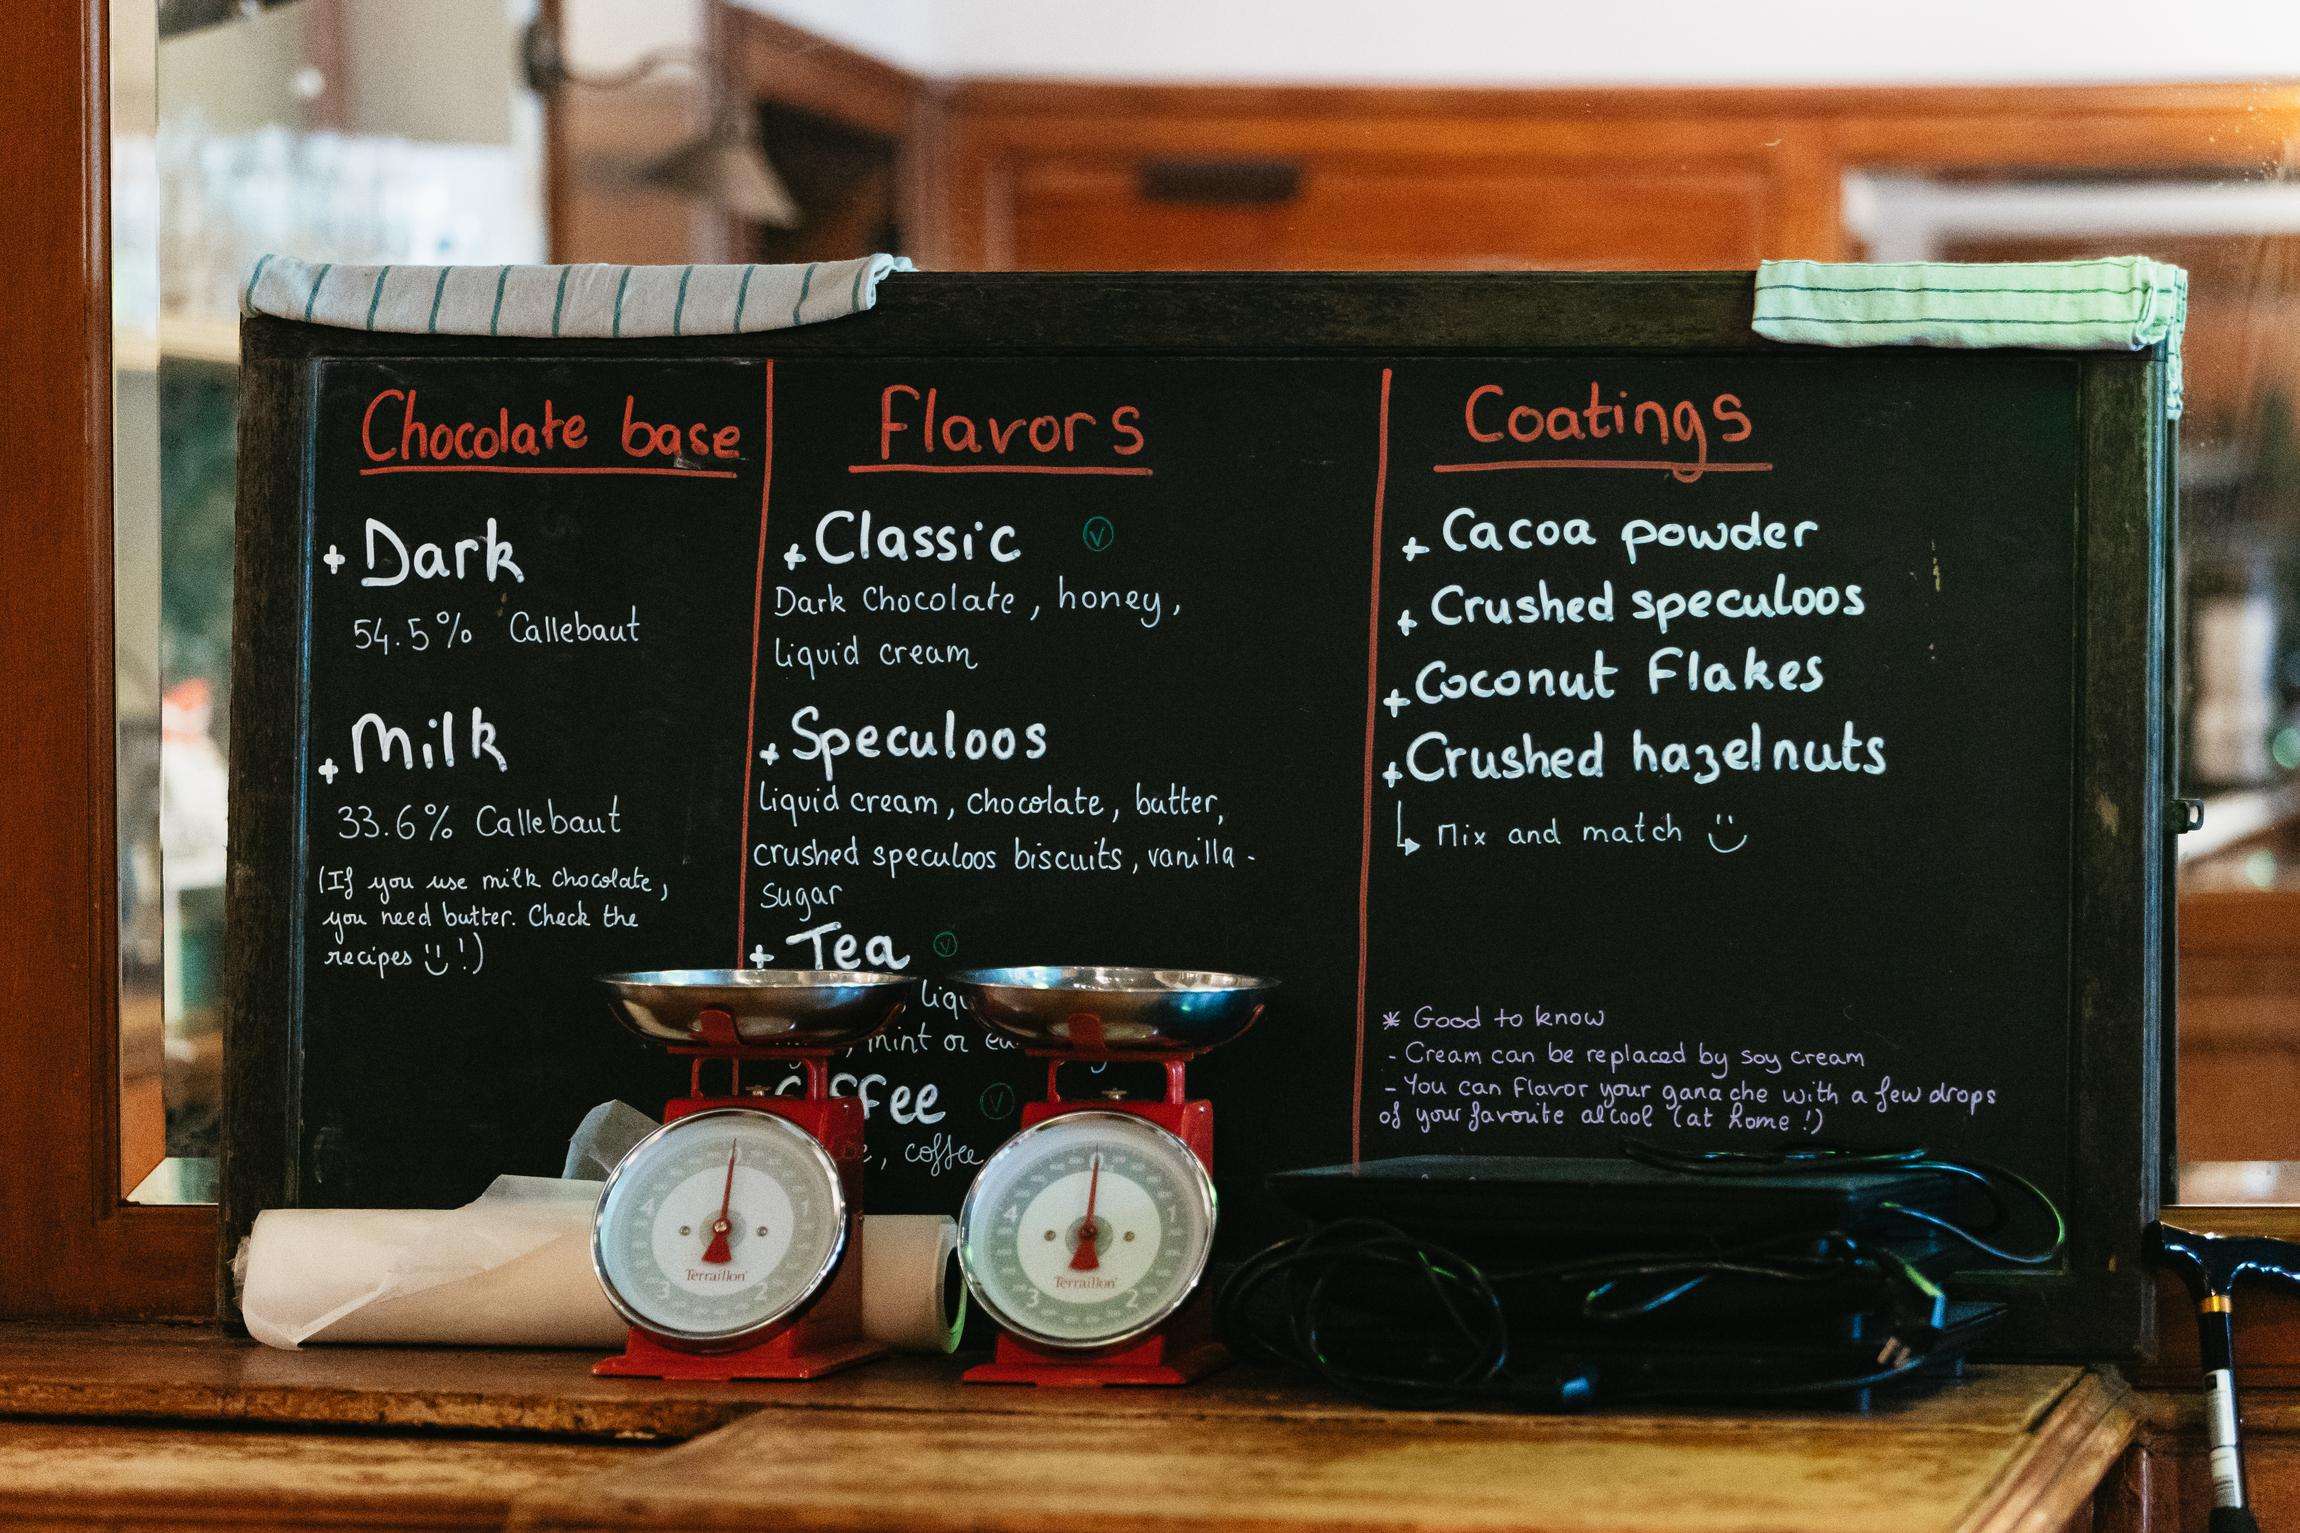 Chocolate base
+ Dark
54.5% Callebaut
+ Milk
33.6% Callebaut
(If you use milk chocolate,
you need butter. Check the
recipes !)
Flavors
+ Classic V
Dark Chocolate, honey,
liquid cream
+ Speculoos
liquid cream, chocolate, butter,
crushed speculoos biscuits, vanilla -
sugar
+ Tea V
, mint or
V
, coffee
Coatings
+ Cacoa powder
+ Crushed speculoos
+ Coconut Flakes
+ Crushed hazelnuts
Mix and match
* Good to know
- Cream can be replaced by soy cream
- You can flavor your ganache with a few drops
of your favourite alcool (at home !)
0
4
3
2
Terraillon
0
4
3
2
Terraillon